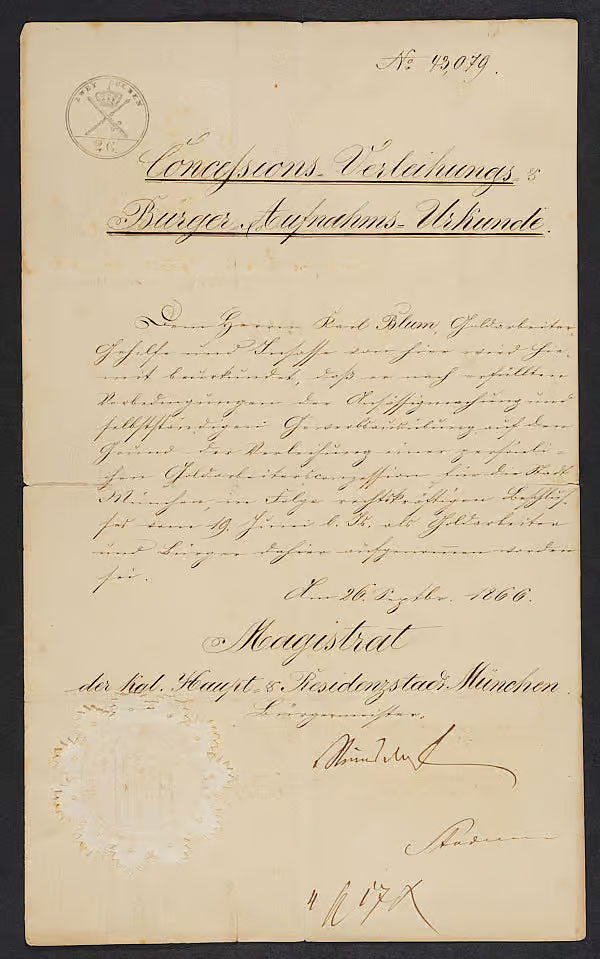 No 43,079.
ZWEY GULDEN
26
Concessions-Verleihungs- &
Bürger-Aufnahms-Urkunde.
Dem Herrn Karl Blum, Goldarbeiter
Gehilfe und Insasse von hier wird hie-
mit beurkundet, daß er nach erfüllten
Vorbedingungen der Ansässigmachung und
selbstständigen Gewerbsausübung auf den
Grund der Verleihung einer persönli-
chen Goldarbeitersconzession für die Stadt
München, in Folge rechtskräftigen Beschlus-
ses vom 19. Juni l. Js. als Goldarbeiter
und Bürger dahier aufgenommen worden
sei.
Am 26. Septbr. 1866.
Magistrat
der kgl. Haupt- & Residenzstadt München.
Bürgermeister.
17